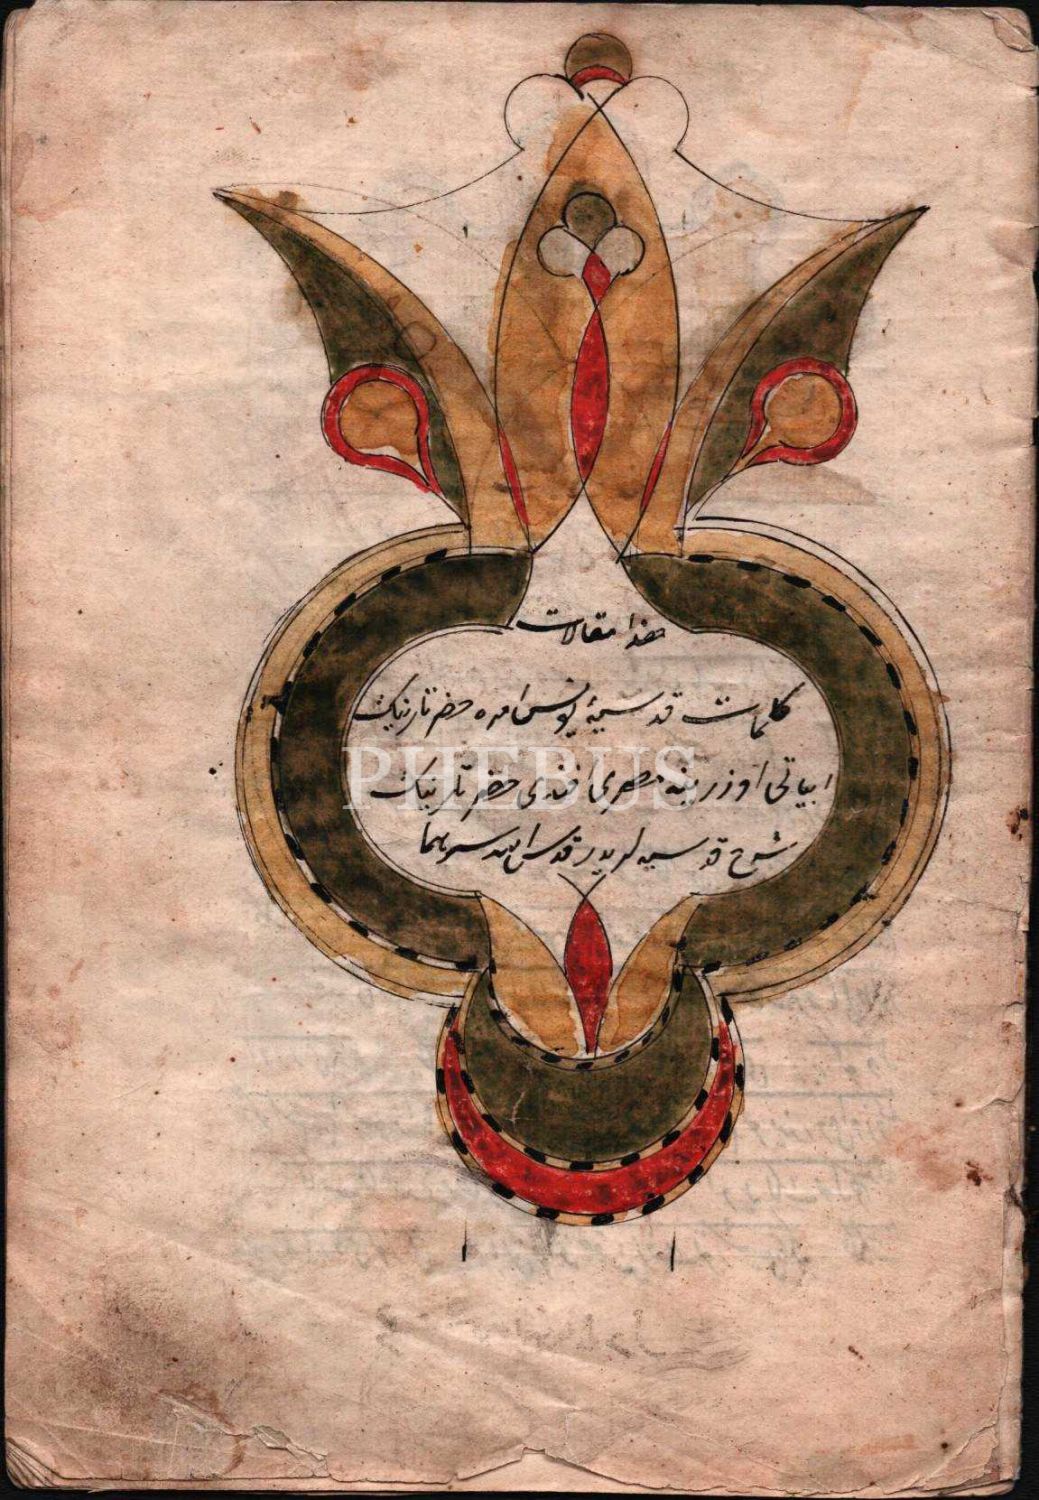 هذا مقالات
كلمات قدسيهٔ يونس امره حضرتلرينك
ابياتى اوزرينه مصرى افندى حضرتلرينك
شرح قدسيه لريدر قدس الله سرهما
PHEBUS